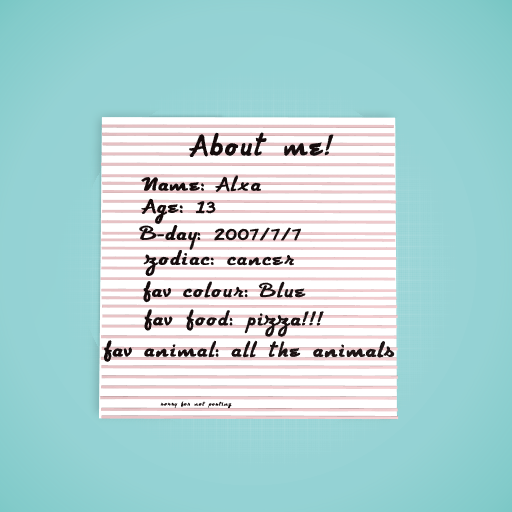 About me!
Name: Alxa
Age: 13
B-day: 2007/7/7
zodiac: cancer
fav colour: Blue
fav food: pizza!!!
fav animal: all the animals
sorry for not posting